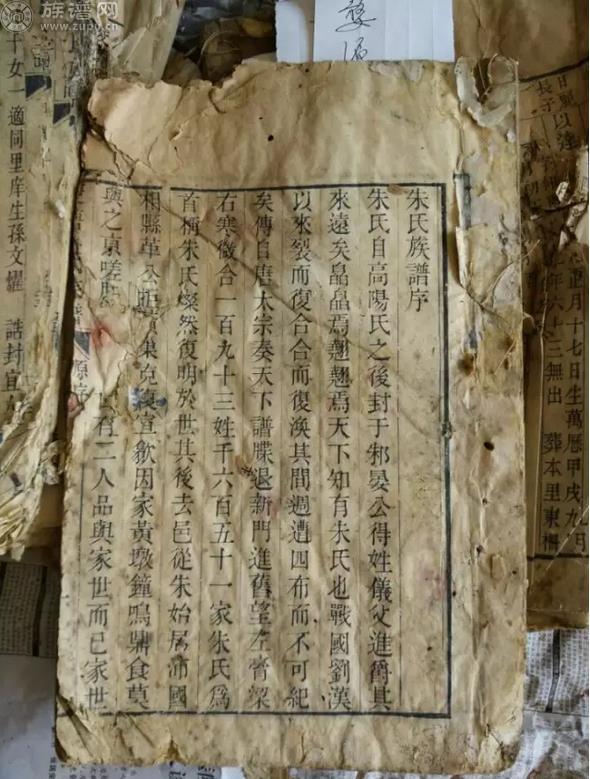 族谱网
www.zupu.cn
朱氏族譜序
朱氏自高陽氏之後封于邾晏公得姓儀父進爵其
來遠矣皛皛焉翹翹焉天下知有朱氏也戰國劉漢
以來裂而復合合而復渙其間週遭四布而不可紀
矣傳自唐太宗奏天下譜牒退新門進舊望左膏粱
右寒微合一百九十三姓千六百五十一家朱氏爲
首稱朱氏燦然復明於世其後去邑從朱始居沛國
相縣革
宣歙因家黃墩鐘鳴鼎食莫
與之京嗟
有二人品與家世而已家世
十女一適同里庠生孫文燿
誥封宜
長子
正月十七日生萬歷甲戌九月
六十三無出
葬本里東柵